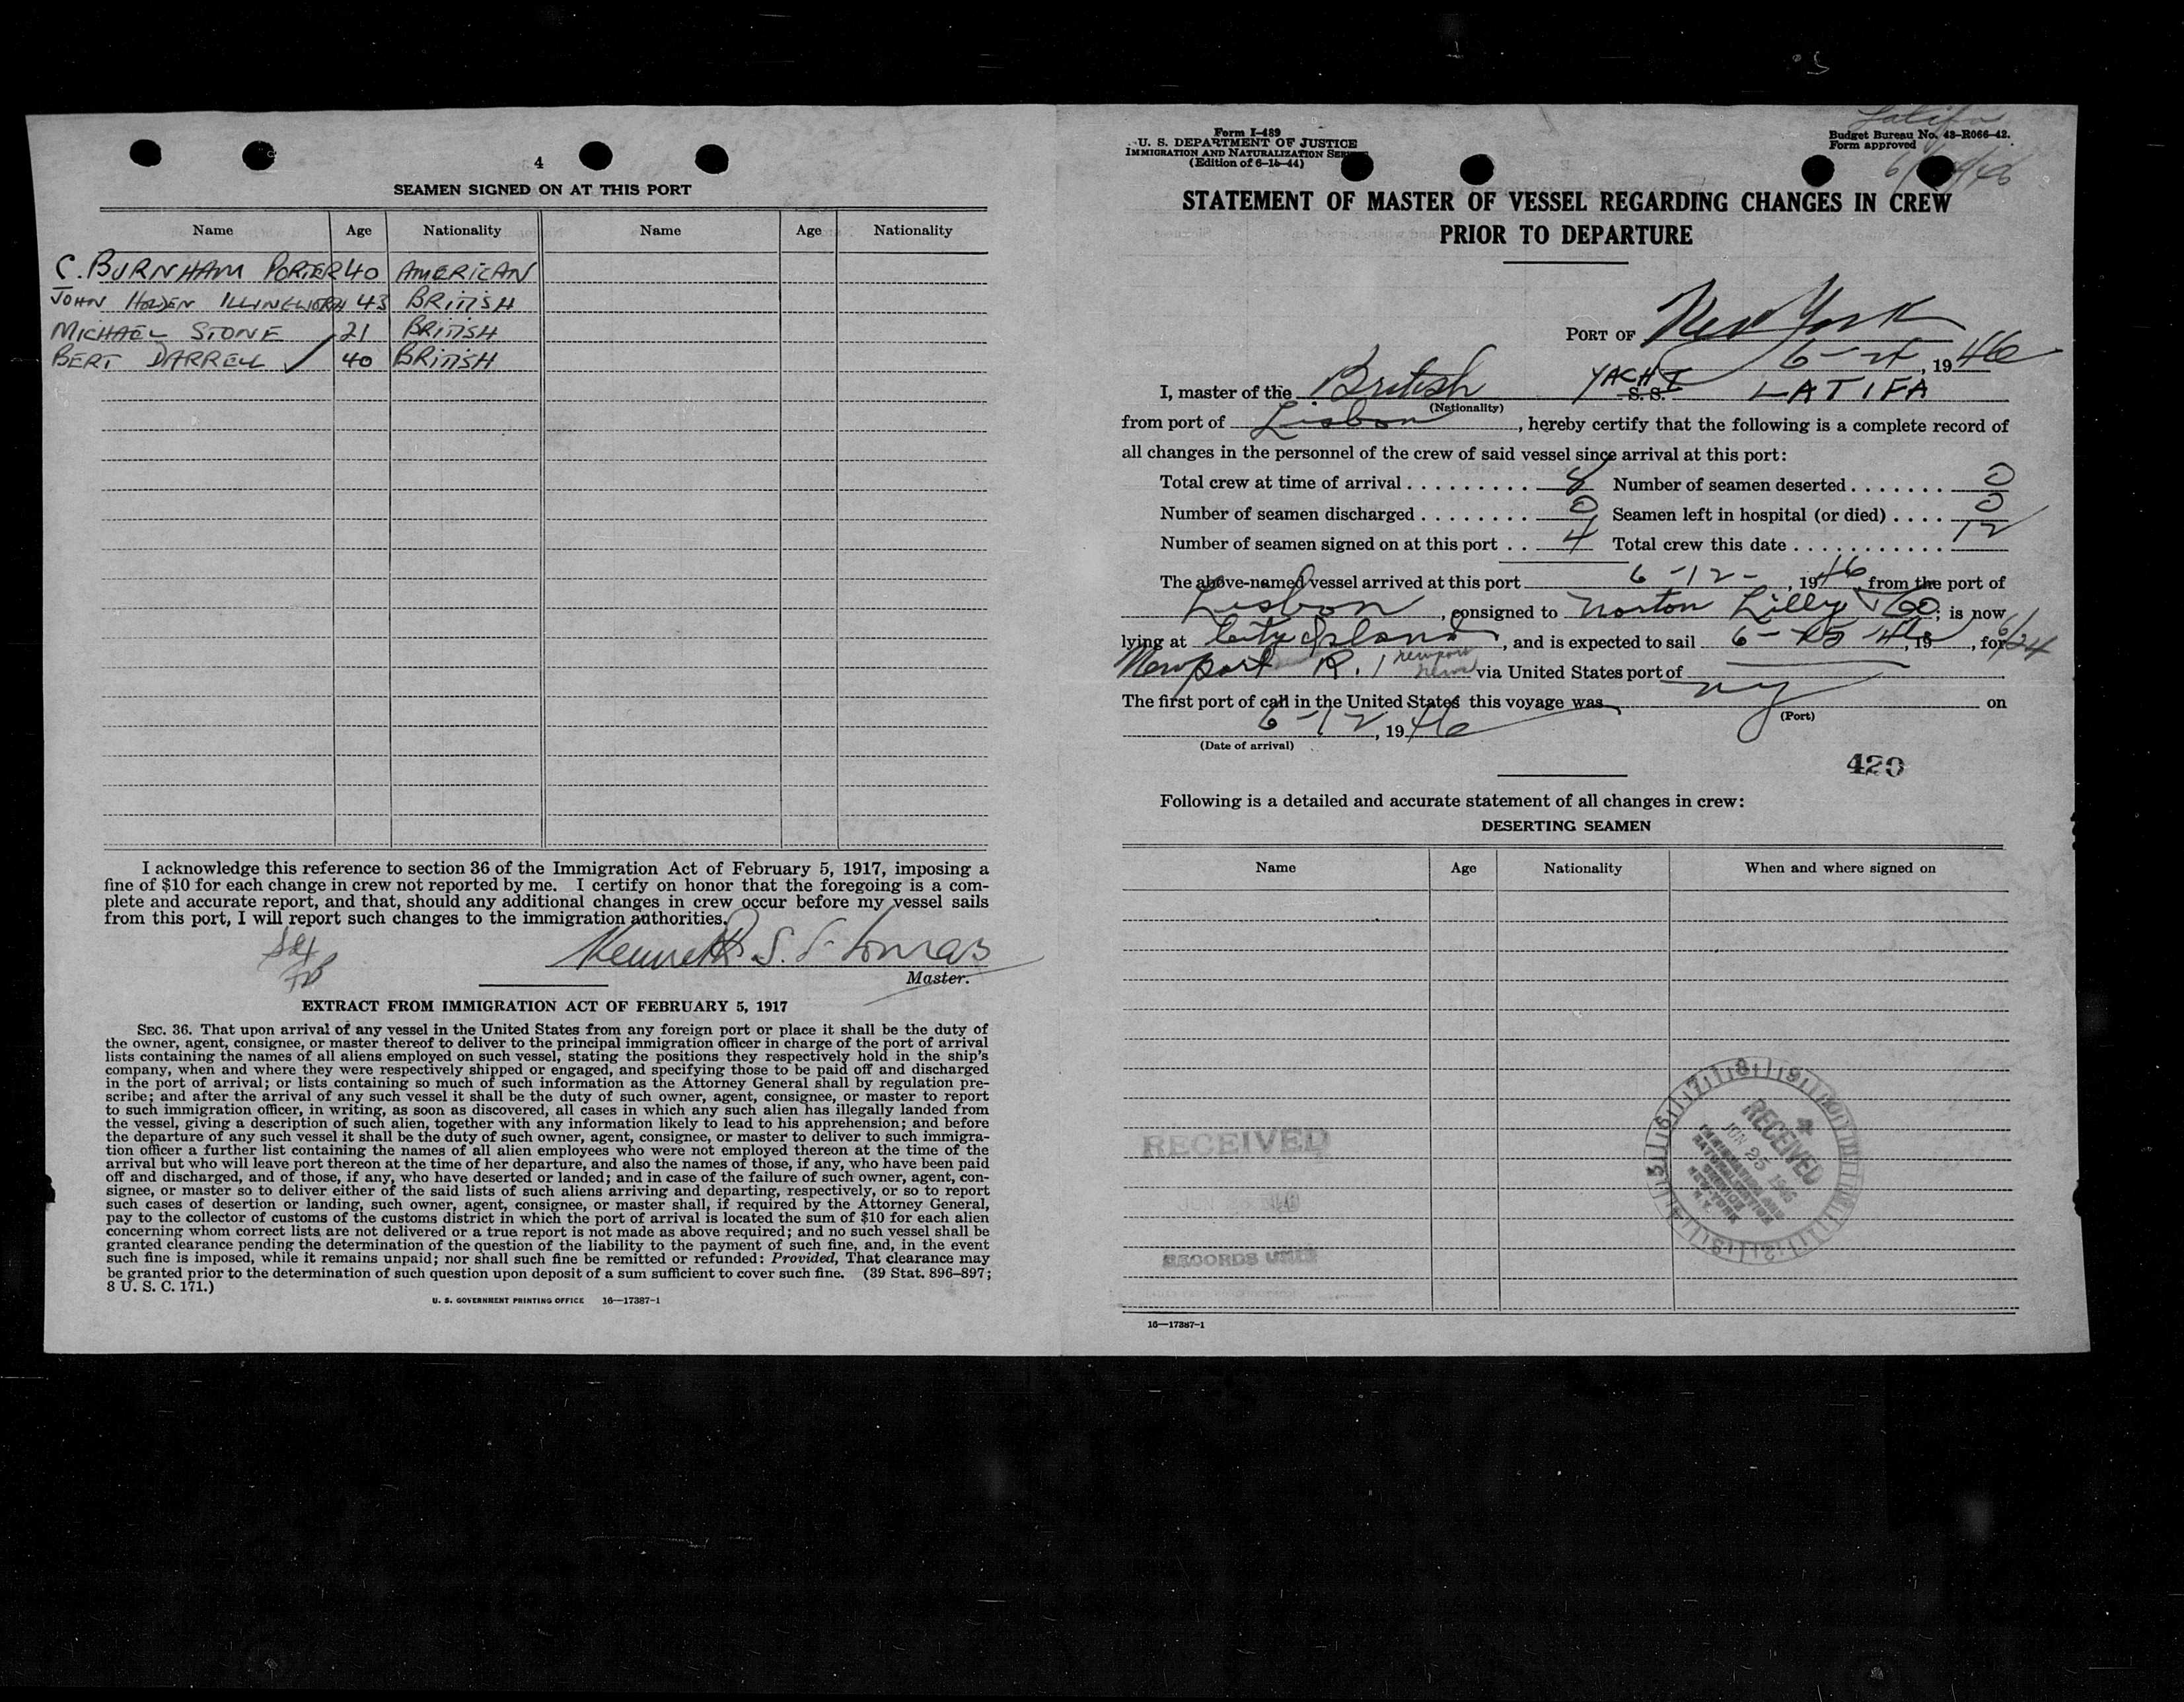 4
SEAMEN SIGNED ON AT THIS PORT
Name Age Nationality Name Age Nationality
C. BURNHAM PORTER 40 AMERICAN
JOHN HOLDEN ILLINGWORTH 43 BRITISH
MICHAEL STONE 21 BRITISH
BERT DARRELL ✓ 40 BRITISH
I acknowledge this reference to section 36 of the Immigration Act of February 5, 1917, imposing a
fine of $10 for each change in crew not reported by me. I certify on honor that the foregoing is a com-
plete and accurate report, and that, should any additional changes in crew occur before my vessel sails
from this port, I will report such changes to the immigration authorities.
Kenneth S.
Master.
EXTRACT FROM IMMIGRATION ACT OF FEBRUARY 5, 1917
SEC. 36. That upon arrival of any vessel in the United States from any foreign port or place it shall be the duty of
the owner, agent, consignee, or master thereof to deliver to the principal immigration officer in charge of the port of arrival
lists containing the names of all aliens employed on such vessel, stating the positions they respectively hold in the ship's
company, when and where they were respectively shipped or engaged, and specifying those to be paid off and discharged
in the port of arrival; or lists containing so much of such information as the Attorney General shall by regulation pre-
scribe; and after the arrival of any such vessel it shall be the duty of such owner, agent, consignee, or master to report
to such immigration officer, in writing, as soon as discovered, all cases in which any such alien has illegally landed from
the vessel, giving a description of such alien, together with any information likely to lead to his apprehension; and before
the departure of any such vessel it shall be the duty of such owner, agent, consignee, or master to deliver to such immigra-
tion officer a further list containing the names of all alien employees who were not employed thereon at the time of the
arrival but who will leave port thereon at the time of her departure, and also the names of those, if any, who have been paid
off and discharged, and of those, if any, who have deserted or landed; and in case of the failure of such owner, agent, con-
signee, or master so to deliver either of the said lists of such aliens arriving and departing, respectively, or so to report
such cases of desertion or landing, such owner, agent, consignee, or master shall, if required by the Attorney General,
pay to the collector of customs of the customs district in which the port of arrival is located the sum of $10 for each alien
concerning whom correct lists are not delivered or a true report is not made as above required; and no such vessel shall be
granted clearance pending the determination of the question of the liability to the payment of such fine, and, in the event
such fine is imposed, while it remains unpaid; nor shall such fine be remitted or refunded: Provided, That clearance may
be granted prior to the determination of such question upon deposit of a sum sufficient to cover such fine. (39 Stat. 896–897;
8 U. S. C. 171.)
U. S. GOVERNMENT PRINTING OFFICE 16—17387-1
Latifa
Form I-489
U. S. DEPARTMENT OF JUSTICE
IMMIGRATION AND NATURALIZATION
(Edition of 6-15-44)
Budget Bureau No. 43-R066-42.
Form approved
STATEMENT OF MASTER OF VESSEL REGARDING CHANGES IN CREW
PRIOR TO DEPARTURE
PORT OF New York
6-24, 1946
I, master of the British YACHT S.S. LATIFA
(Nationality)
from port of Lisbon, hereby certify that the following is a complete record of
all changes in the personnel of the crew of said vessel since arrival at this port:
Total crew at time of arrival 8 Number of seamen deserted 0
Number of seamen discharged 0 Seamen left in hospital (or died) 0
Number of seamen signed on at this port 4 Total crew this date 12
The above-named vessel arrived at this port 6-12-, 1946 from the port of
Lisbon, consigned to Norton Lilly & Co; is now
lying at City Island, and is expected to sail 6-25-46, 19 , for 6/24
Newport R.I newport news via United States port of
The first port of call in the United States this voyage was NY on
(Port)
6-12, 1946
(Date of arrival)
420
Following is a detailed and accurate statement of all changes in crew:
DESERTING SEAMEN
Name Age Nationality When and where signed on
RECEIVED
RECORDS UNIT
RECEIVED
JUN 25 1946
IMMIGRATION AND
NATURALIZATION
SERVICE
NEW YORK
N.Y.
16—17387-1